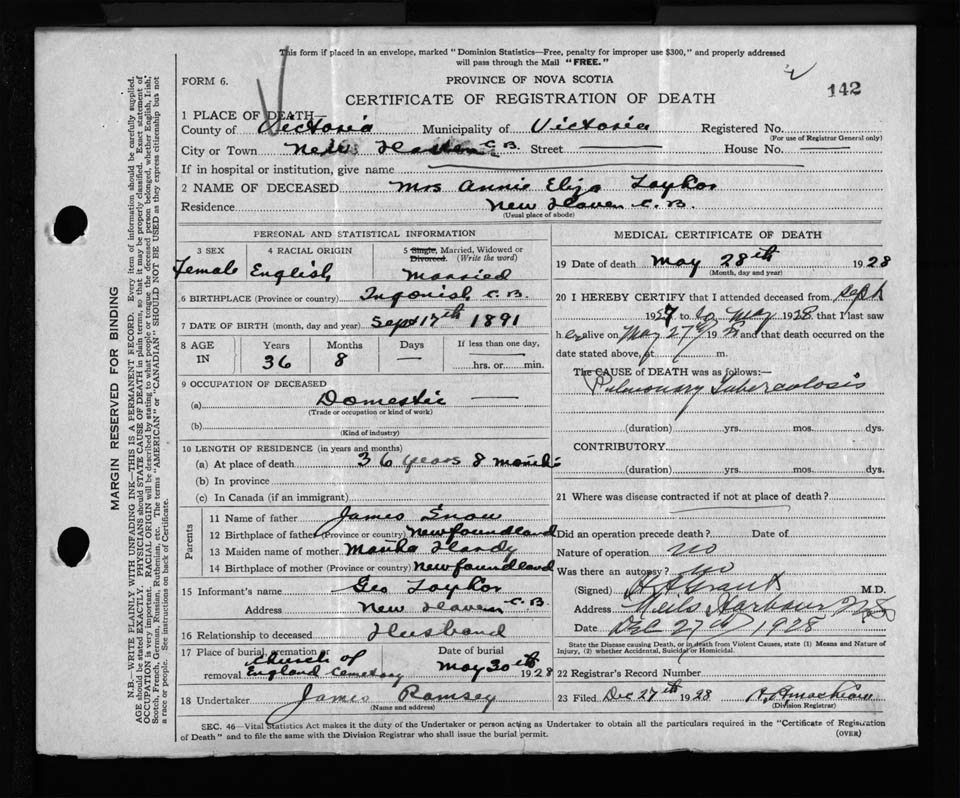 This form if placed in an envelope, marked "Dominion Statistics—Free, penalty for improper use $300," and properly addressed
will pass through the Mail "FREE."
FORM 6.
PROVINCE OF NOVA SCOTIA
142
CERTIFICATE OF REGISTRATION OF DEATH
1 PLACE OF DEATH—
County of Victoria Municipality of Victoria Registered No.
(For use of Registrar General only)
City or Town New Haven C.B. Street House No.
If in hospital or institution, give name
2 NAME OF DECEASED Mrs Annie Eliza Taylor
Residence New Haven C.B.
(Usual place of abode)
PERSONAL AND STATISTICAL INFORMATION
3 SEX 4 RACIAL ORIGIN 5 Single, Married, Widowed or
Divorced. (Write the word)
Female English Married
6 BIRTHPLACE (Province or country) Ingonish C.B.
7 DATE OF BIRTH (month, day and year) Sept 17th 1891
8 AGE IN Years Months Days If less than one day,
36 8 — hrs. or min.
9 OCCUPATION OF DECEASED
(a) Domestic
(Trade or occupation or kind of work)
(b)
(Kind of industry)
10 LENGTH OF RESIDENCE (in years and months)
(a) At place of death 36 years 8 months
(b) In province
(c) In Canada (if an immigrant)
Parents
11 Name of father James Snow
12 Birthplace of father (Province or country) Newfoundland
13 Maiden name of mother Hardy
14 Birthplace of mother (Province or country) Newfoundland
15 Informant's name Geo Taylor
Address New Haven C.B.
16 Relationship to deceased Husband
17 Place of burial, cremation or Date of burial
removal Church of England Cemetery May 30th 1928
18 Undertaker James Ramsey
(Name and address)
MEDICAL CERTIFICATE OF DEATH
19 Date of death May 28th 1928
(Month, day and year)
20 I HEREBY CERTIFY that I attended deceased from Sept
1927 to May 1928 that I last saw
her alive on May 27th 1928 and that death occurred on the
date stated above, at m.
The CAUSE of DEATH was as follows:—
Pulmonary Tuberculosis
(duration) yrs. mos. dys.
CONTRIBUTORY
(duration) yrs. mos. dys.
21 Where was disease contracted if not at place of death?
Did an operation precede death? Date of
Nature of operation no
Was there an autopsy? no
(Signed) Grant M.D.
Address Neils Harbour
Date Dec 27th 1928
State the Disease causing Death, or in death from Violent Causes, state (1) Means and Nature of
Injury, (2) whether Accidental, Suicidal or Homicidal.
22 Registrar's Record Number
23 Filed Dec 27th 1928
(Division Registrar)
SEC. 46—Vital Statistics Act makes it the duty of the Undertaker or person acting as Undertaker to obtain all the particulars required in the "Certificate of Registration
of Death" and to file the same with the Division Registrar who shall issue the burial permit.
(OVER)
MARGIN RESERVED FOR BINDING
N.B.—WRITE PLAINLY WITH UNFADING INK—THIS IS A PERMANENT RECORD. Every item of information should be carefully supplied.
AGE should be stated EXACTLY. PHYSICIANS should STATE CAUSE OF DEATH in plain terms, so that it may be properly classified. Exact statement of
OCCUPATION is very important. RACIAL ORIGIN will be described by stating to what people or tongue the deceased person belonged, whether English, Irish,
Scotch, French, German, Russian, Ruthenian, etc. The terms "AMERICAN" or "CANADIAN" SHOULD NOT BE USED as they express citizenship but not
a race or people. See instructions on back of Certificate.